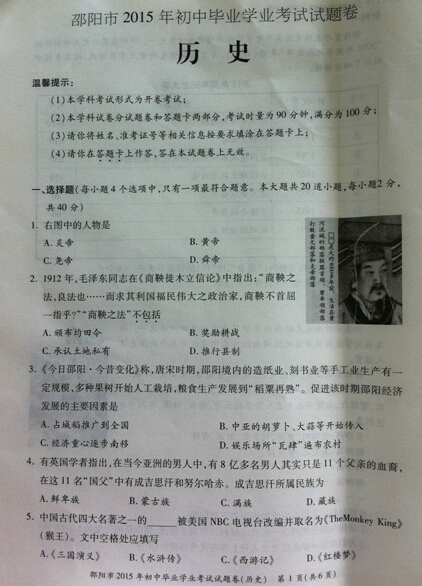 邵阳市 2015 年初中毕业学业考试试题卷
历 史
温馨提示：
(1)本学科考试形式为开卷考试；
(2)本学科试卷分试题卷和答题卡两部分，考试时量为 90 分钟，满分为 100 分；
(3)请你将姓名、准考证号等相关信息按要求填涂在答题卡上；
(4)请你在答题卡上作答，答在本试题卷上无效。
一、选择题(每小题 4 个选项中，只有一项最符合题意。本大题共 20 道小题，每小题2 分，
共 40 分)
1. 右图中的人物是
A. 炎帝 B. 黄帝
C. 尧帝 D. 舜帝
2. 1912 年，毛泽东同志在《商鞅徙木立信论》中指出：“商鞅之
法，良法也……而求其利国福民伟大之政治家，商鞅不首屈
一指乎？”“商鞅之法”不包括
A. 颁布均田令 B. 奖励耕战
C. 承认土地私有 D. 推行县制
3. 《今日邵阳·今昔变化》称，唐宋时期，邵阳境内的造纸业、刻书业等手工业生产有一
定规模，多种果树开始人工栽培，粮食生产发展到“稻粟再熟”。促进该时期邵阳经济
发展的主要因素是
A. 占城稻推广到全国 B. 中亚的胡萝卜、大蒜等开始传入
C. 经济重心逐步南移 D. 娱乐场所“瓦肆”遍布农村
4. 有英国学者指出，在当今亚洲的男人中，有 8 亿多名男人其实只是 11 个父亲的血裔，
在这 11 名“国父”中有成吉思汗和努尔哈赤。成吉思汗所属民族为
A. 鲜卑族 B. 蒙古族 C. 满族 D. 藏族
5. 中国古代四大名著之一的_____被美国 NBC 电视台改编并取名为《TheMonkey King》
(猴王)。文中空格处应填写
A.《三国演义》 B.《水浒传》 C.《西游记》 D.《红楼梦》
邵阳市 2015 年初中毕业学业考试试题卷(历史) 第 1 页(共 6 页)